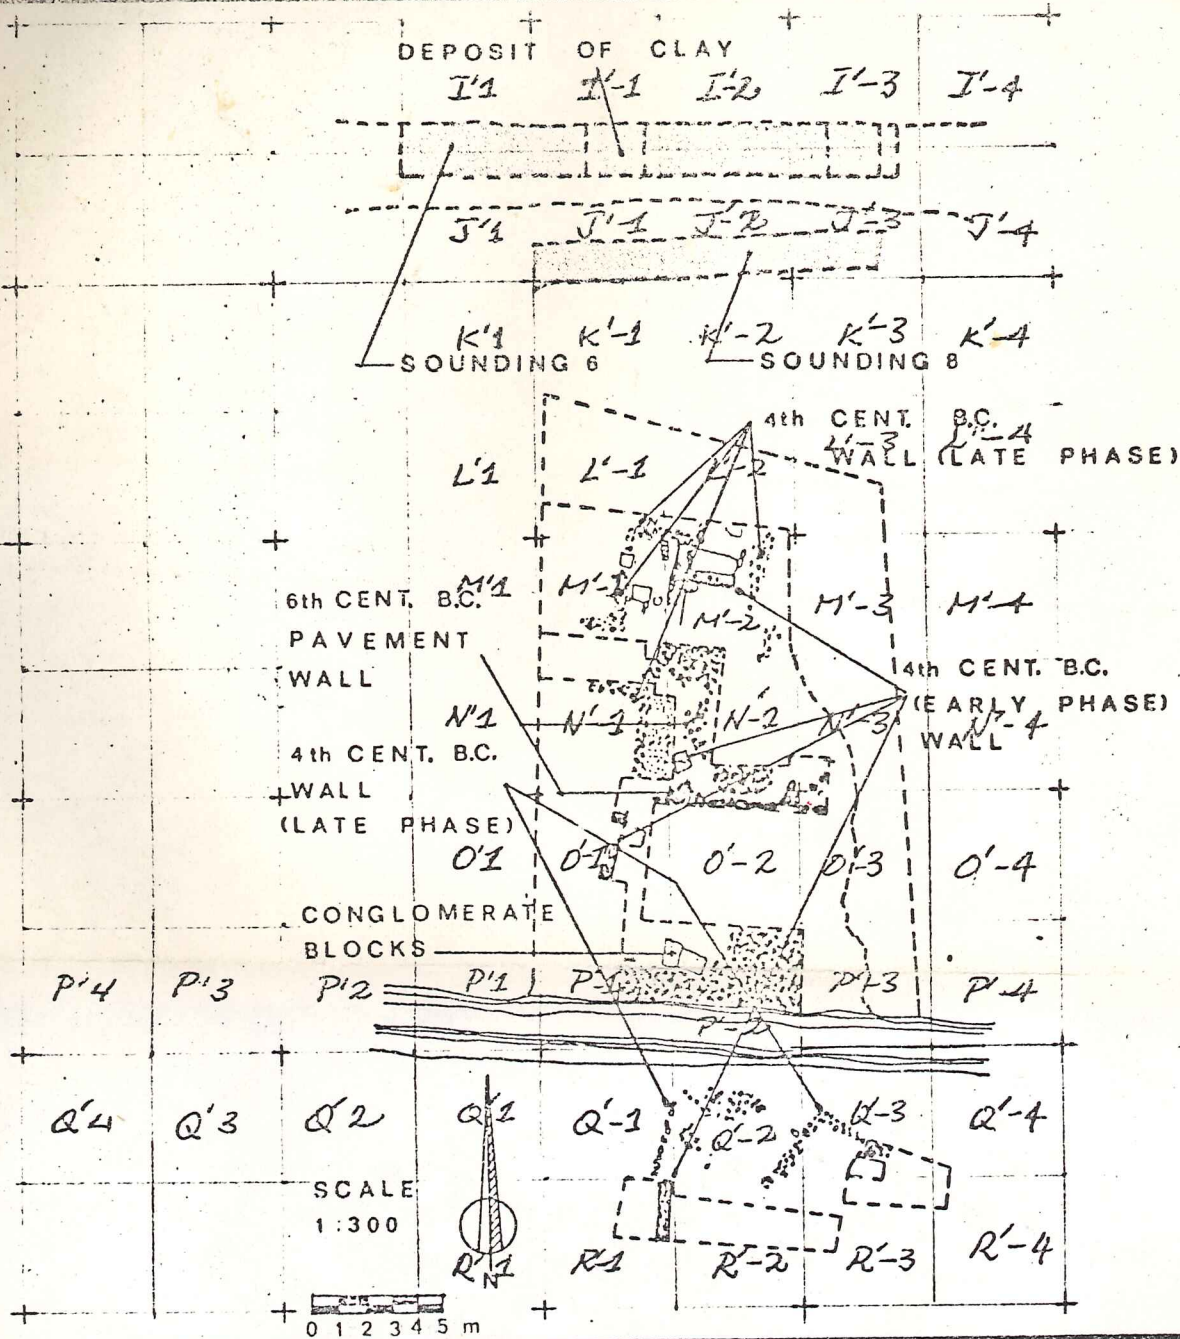 DEPOSIT OF CLAY
I'1 I'-1 I'-2 I'-3 I'-4
J'1 J'-1 J'-2 J'-3 J'-4
K'1 K'-1 K'-2 K'-3 K'-4
SOUNDING 6 SOUNDING 8
4th CENT. B.C.
WALL (LATE PHASE)
L'1 L'-1 L'-2 L'-3 L'-4
6th CENT. B.C.
PAVEMENT
WALL
M'1 M'-1 M'-2 M'-3 M'-4
4th CENT. B.C.
(EARLY PHASE)
WALL
N'1 N'-1 N'-2 N'-3 N'-4
4th CENT. B.C.
WALL
(LATE PHASE)
O'1 O'-1 O'-2 O'-3 O'-4
CONGLOMERATE
BLOCKS
P'4 P'3 P'2 P'1 P'-1 P'-2 P'-3 P'-4
Q'4 Q'3 Q'2 Q'1 Q'-1 Q'-2 Q'-3 Q'-4
SCALE
1:300
R'1 R'-1 R'-2 R'-3 R'-4
N
0 1 2 3 4 5 m